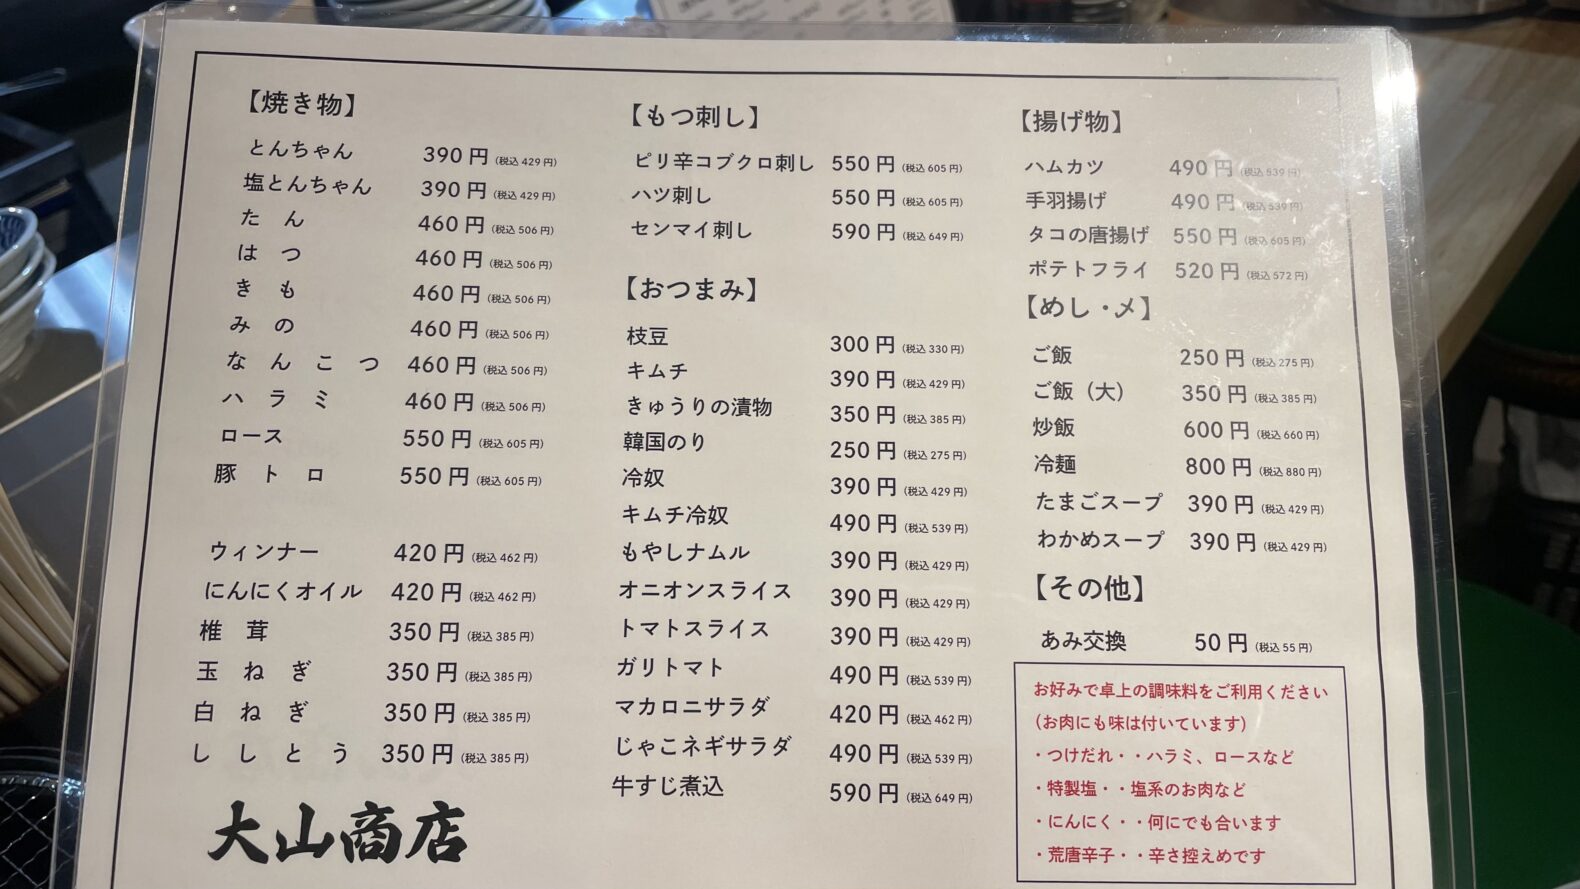 【焼き物】
とんちゃん 390円(税込429円)
塩とんちゃん 390円(税込429円)
たん 460円(税込506円)
はつ 460円(税込506円)
きも 460円(税込506円)
みの 460円(税込506円)
なんこつ 460円(税込506円)
ハラミ 460円(税込506円)
ロース 550円(税込605円)
豚トロ 550円(税込605円)
ウィンナー 420円(税込462円)
にんにくオイル 420円(税込462円)
椎茸 350円(税込385円)
玉ねぎ 350円(税込385円)
白ねぎ 350円(税込385円)
ししとう 350円(税込385円)
大山商店
【もつ刺し】
ピリ辛コブクロ刺し 550円(税込605円)
ハツ刺し 550円(税込605円)
センマイ刺し 590円(税込649円)
【おつまみ】
枝豆 300円(税込330円)
キムチ 390円(税込429円)
きゅうりの漬物 350円(税込385円)
韓国のり 250円(税込275円)
冷奴 390円(税込429円)
キムチ冷奴 490円(税込539円)
もやしナムル 390円(税込429円)
オニオンスライス 390円(税込429円)
トマトスライス 390円(税込429円)
ガリトマト 490円(税込539円)
マカロニサラダ 420円(税込462円)
じゃこネギサラダ 490円(税込539円)
牛すじ煮込 590円(税込649円)
【揚げ物】
ハムカツ 490円(税込539円)
手羽揚げ 490円(税込539円)
タコの唐揚げ 550円(税込605円)
ポテトフライ 520円(税込572円)
【めし・〆】
ご飯 250円(税込275円)
ご飯（大） 350円(税込385円)
炒飯 600円(税込660円)
冷麺 800円(税込880円)
たまごスープ 390円(税込429円)
わかめスープ 390円(税込429円)
【その他】
あみ交換 50円(税込55円)
お好みで卓上の調味料をご利用ください
(お肉にも味は付いています)
・つけだれ・・ハラミ、ロースなど
・特製塩・・塩系のお肉など
・にんにく・・何にでも合います
・荒唐辛子・・辛さ控えめです